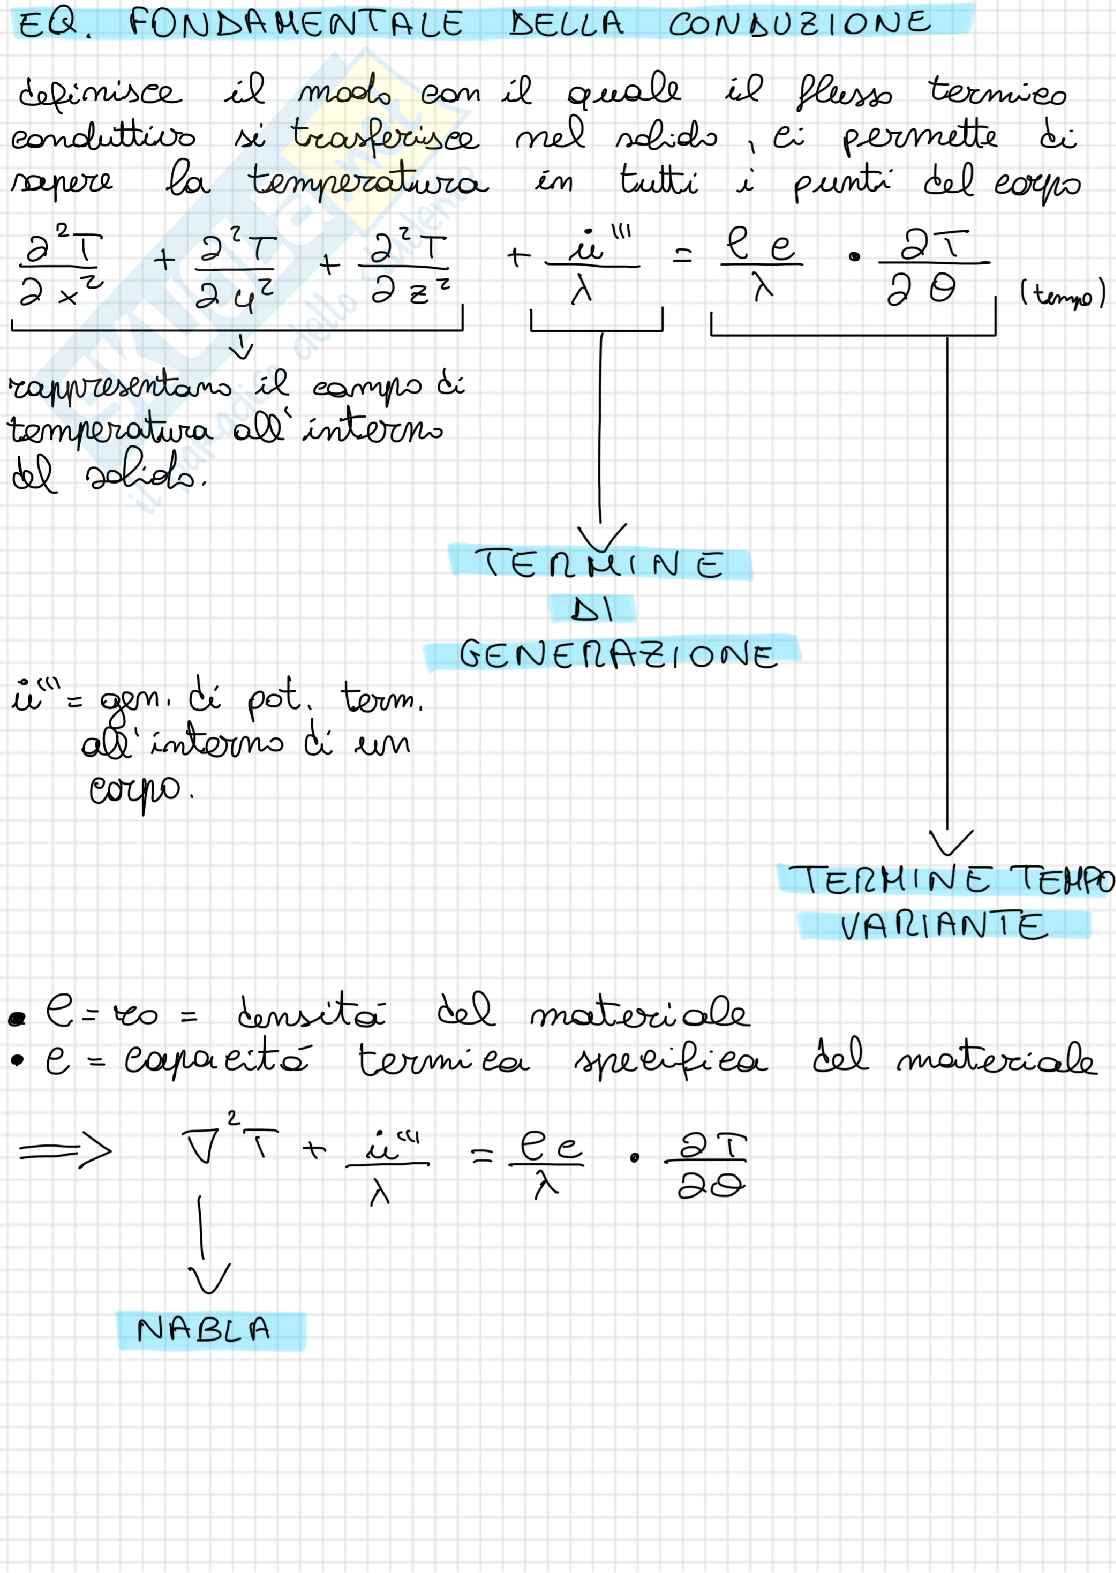 EQ. FONDAMENTALE DELLA CONDUZIONE
definisce il modo con il quale il flusso termico
conduttivo si trasferisce nel solido, ci permette di
sapere la temperatura in tutti i punti del corpo
∂²T/∂x² + ∂²T/∂y² + ∂²T/∂z² + u̇'''/λ = ρc/λ · ∂T/∂θ (tempo)
rappresentano il campo di
temperatura all'interno
del solido.
TERMINE
DI
GENERAZIONE
u̇''' = gen. di pot. term.
all'interno di un
corpo.
TERMINE TEMPO
VARIANTE
• ρ = ro = densitá del materiale
• c = capacitá termica specifica del materiale
⇒ ∇²T + u̇'''/λ = ρc/λ · ∂T/∂θ
NABLA